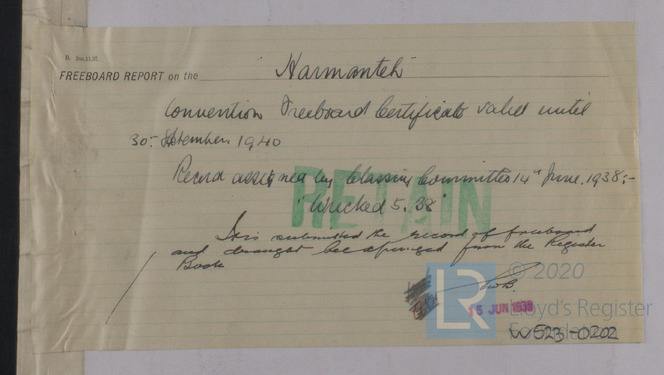 FREEBOARD REPORT on the Harmanteh
Convention Freeboard Certificate valid until
30th September 1940
Record assigned by Classing Committee 14th June, 1938:-
RETAIN
"Wrecked 5.38"
It is submitted the record of freeboard
and draught be expunged from the Register
Book
15 JUN 1938
© 2020
LR Lloyd's Register
Foundation
W523-0202